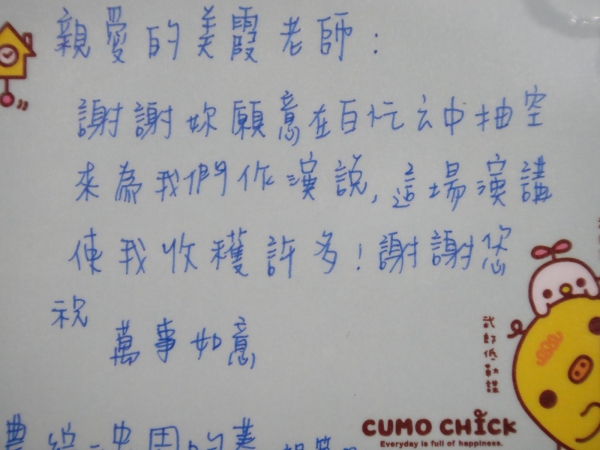 親愛的美霞老師：
謝謝妳願意在百忙之中抽空
來為我們作演説，這場演講
使我收穫許多！謝謝您
祝
萬事如意
CUMO CHICK
Everyday is full of happiness.